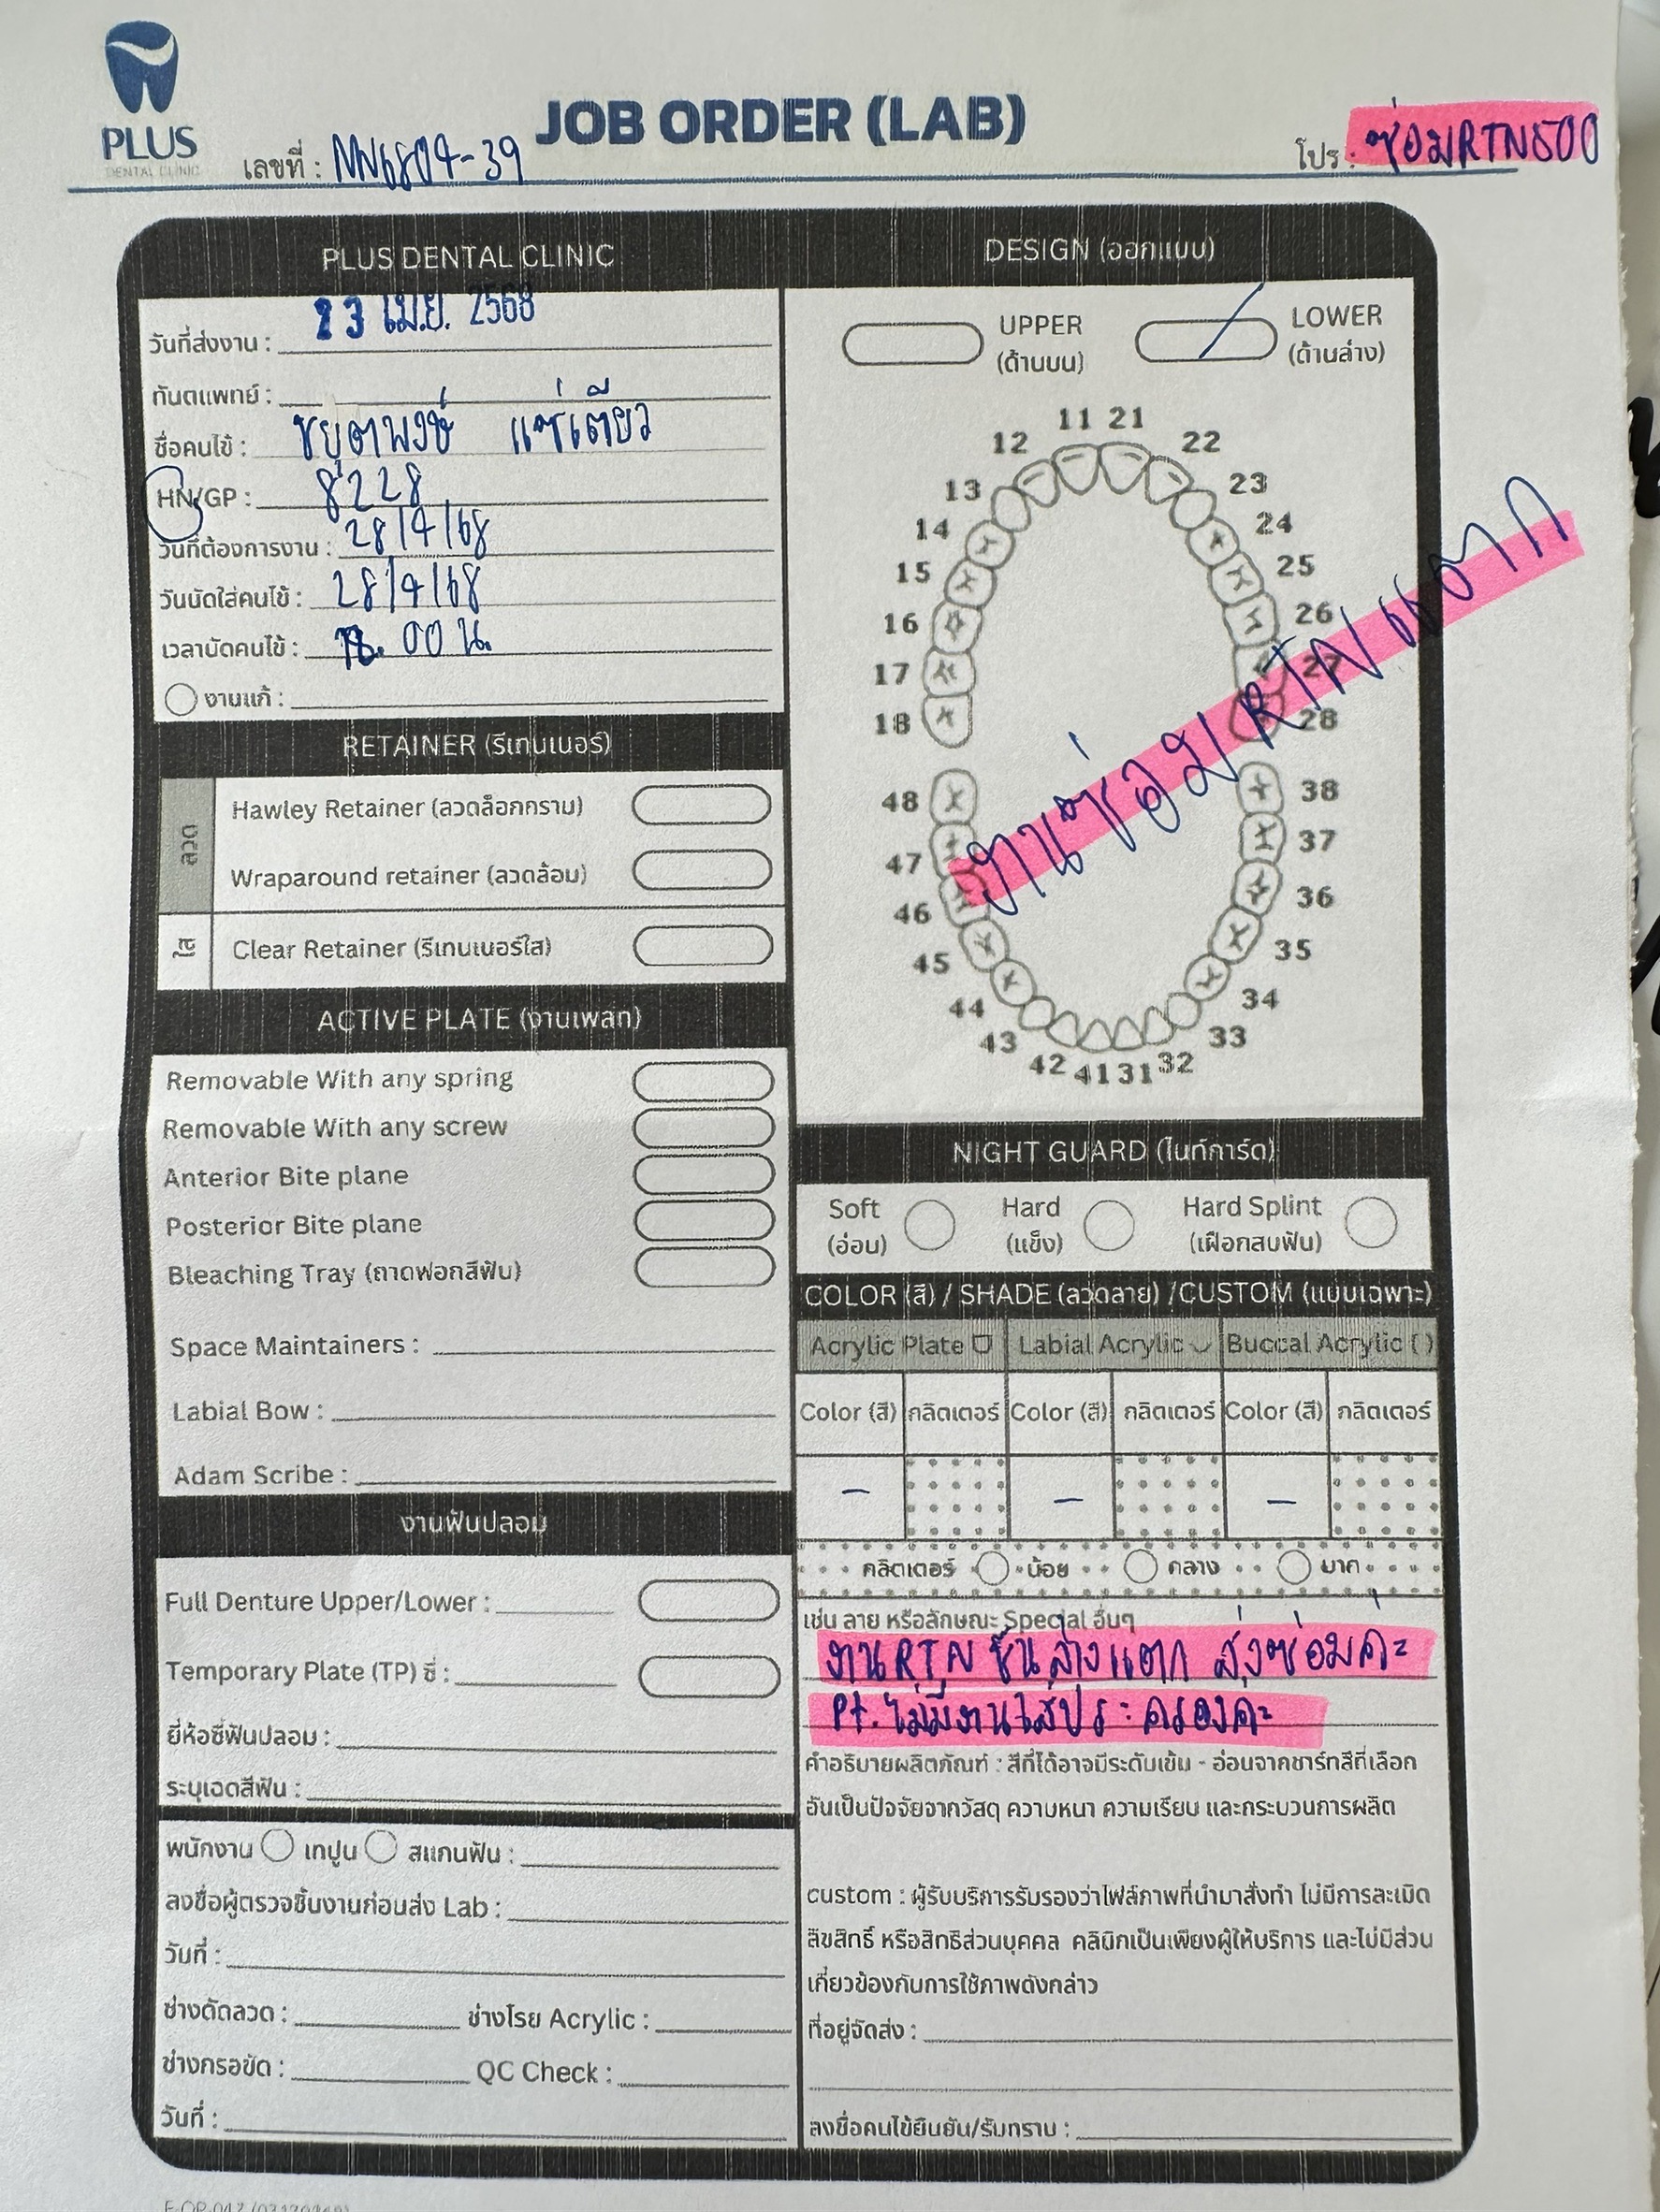 PLUS
DENTAL CLINIC
JOB ORDER (LAB)
เลขที่ : NN6804-39
โปร : ซ่อมRTN500
PLUS DENTAL CLINIC
วันที่ส่งงาน : 23 เม.ย. 2568
ทันตแพทย์ :
ชื่อคนไข้ : ชยุตพงษ์ แซ่เตียว
HN/GP : 8228
วันที่ต้องการงาน : 28/4/68
วันนัดใส่คนไข้ : 28/4/68
เวลานัดคนไข้ : 00 น.
งานแก้ :
RETAINER (รีเทนเนอร์)
ลวด
Hawley Retainer (ลวดล็อกกราม)
Wraparound retainer (ลวดล้อม)
ใส
Clear Retainer (รีเทนเนอร์ใส)
ACTIVE PLATE (งานเพลท)
Removable With any spring
Removable With any screw
Anterior Bite plane
Posterior Bite plane
Bleaching Tray (ถาดฟอกสีฟัน)
Space Maintainers :
Labial Bow :
Adam Scribe :
งานฟันปลอม
Full Denture Upper/Lower :
Temporary Plate (TP) ซี่ :
ยี่ห้อซี่ฟันปลอม :
ระบุเฉดสีฟัน :
พนักงาน เทปูน สแกนฟัน :
ลงชื่อผู้ตรวจชิ้นงานก่อนส่ง Lab :
วันที่ :
ช่างดัดลวด : ช่างโรย Acrylic :
ช่างกรอขัด : QC Check :
วันที่ :
DESIGN (ออกแบบ)
UPPER (ด้านบน)
LOWER (ด้านล่าง)
11 21
12 22
13 23
14 24
15 25
16 26
17 27
18 28
งานซ่อม RTN แตก
48 38
47 37
46 36
45 35
44 34
43 33
42 41 31 32
NIGHT GUARD (ไนท์การ์ด)
Soft (อ่อน)
Hard (แข็ง)
Hard Splint (เฝือกสบฟัน)
COLOR (สี) / SHADE (ลวดลาย) /CUSTOM (แบบเฉพาะ)
Acrylic Plate Labial Acrylic Buccal Acrylic ( )
Color (สี) กลิตเตอร์ Color (สี) กลิตเตอร์ Color (สี) กลิตเตอร์
- - -
กลิตเตอร์ น้อย กลาง มาก
เช่น ลาย หรือลักษณะ Special อื่นๆ
งานRTN ชิ้นล่างแตก ส่งซ่อมค่ะ
Pt. ไม่มีงานใส่ประคองค่ะ
คำอธิบายผลิตภัณฑ์ : สีที่ได้อาจมีระดับเข้ม - อ่อนจากชาร์ทสีที่เลือก
อันเป็นปัจจัยจากวัสดุ ความหนา ความเรียบ และกระบวนการผลิต
custom : ผู้รับบริการรับรองว่าไฟล์ภาพที่นำมาสั่งทำ ไม่มีการละเมิด
ลิขสิทธิ์ หรือสิทธิส่วนบุคคล คลินิกเป็นเพียงผู้ให้บริการ และไม่มีส่วน
เกี่ยวข้องกับการใช้ภาพดังกล่าว
ที่อยู่จัดส่ง :
ลงชื่อคนไข้ยืนยัน/รับทราบ :